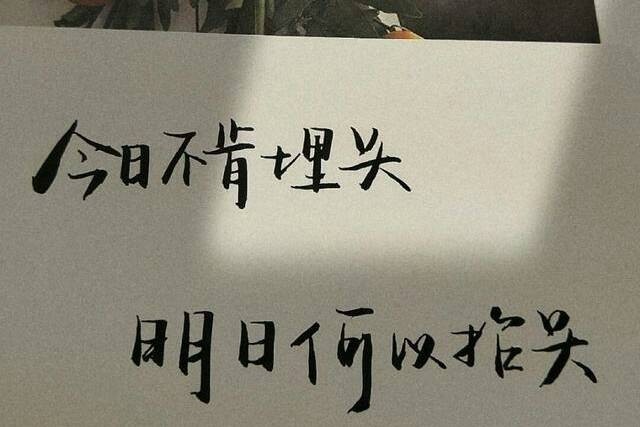 今日不肯埋头
明日何以抬头